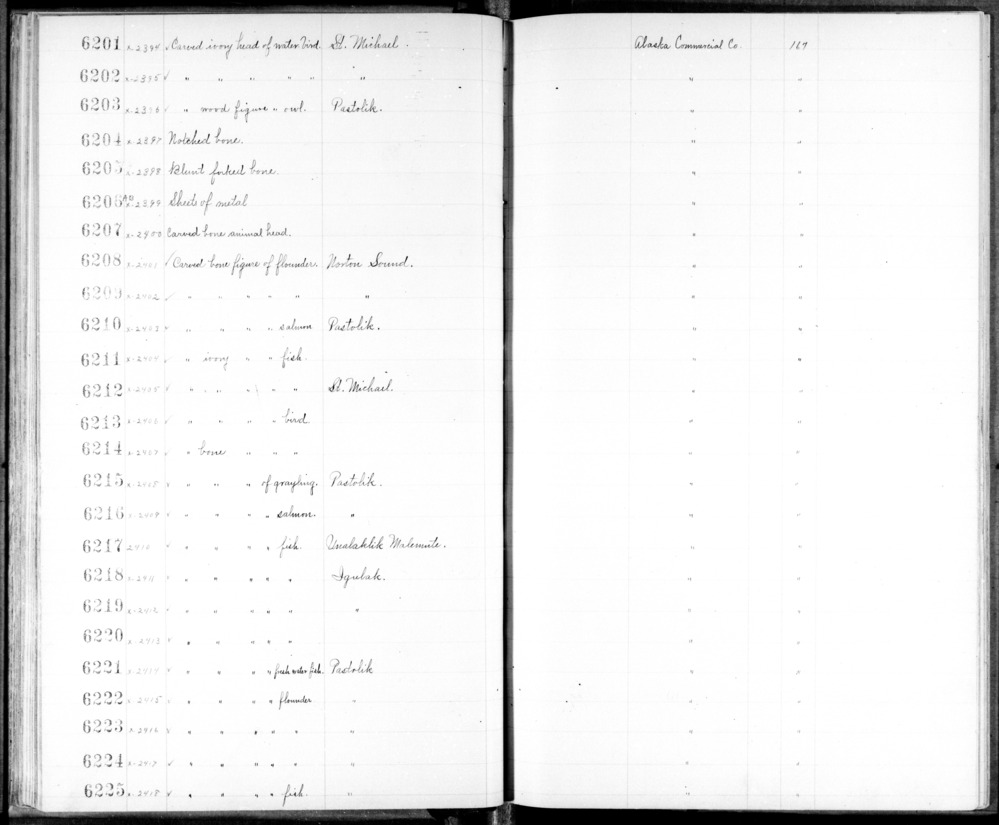 6201 x-2394 ✓ Carved ivory head of water bird. St. Michael. Alaska Commercial Co. 167
6202 x-2395 ✓ " " " " " " " "
6203 x-2396 ✓ " wood figure " owl. Pastolik. " "
6204 x-2397 Notched bone. " "
6205 x-2398 Blunt forked bone. " "
6206 x-2399 Sheets of metal " "
6207 x-2400 Carved bone animal head. " "
6208 x-2401 ✓ Carved bone figure of flounder. Norton Sound. " "
6209 x-2402 ✓ " " " " " " " "
6210 x-2403 ✓ " " " " salmon Pastolik. " "
6211 x-2404 ✓ " ivory " " fish. " "
6212 x-2405 ✓ " " " " " St. Michael. " "
6213 x-2406 ✓ " " " " bird " "
6214 x-2407 ✓ " bone " " " " "
6215 x-2408 ✓ " " " of grayling. Pastolik. " "
6216 x-2409 ✓ " " " " salmon. " " "
6217 2410 ✓ " " " " fish Unalaklik Malemute. " "
6218 x-2411 ✓ " " " " " Igulak. " "
6219 x-2412 ✓ " " " " " " " "
6220 x-2413 ✓ " " " " " " "
6221 x-2414 ✓ " " " " fresh water fish. Pastolik " "
6222 x-2415 ✓ " " " " flounder " " "
6223 x-2416 ✓ " " " " " " " "
6224 x-2417 ✓ " " " " " " " "
6225 x-2418 ✓ " " " " fish. " " "